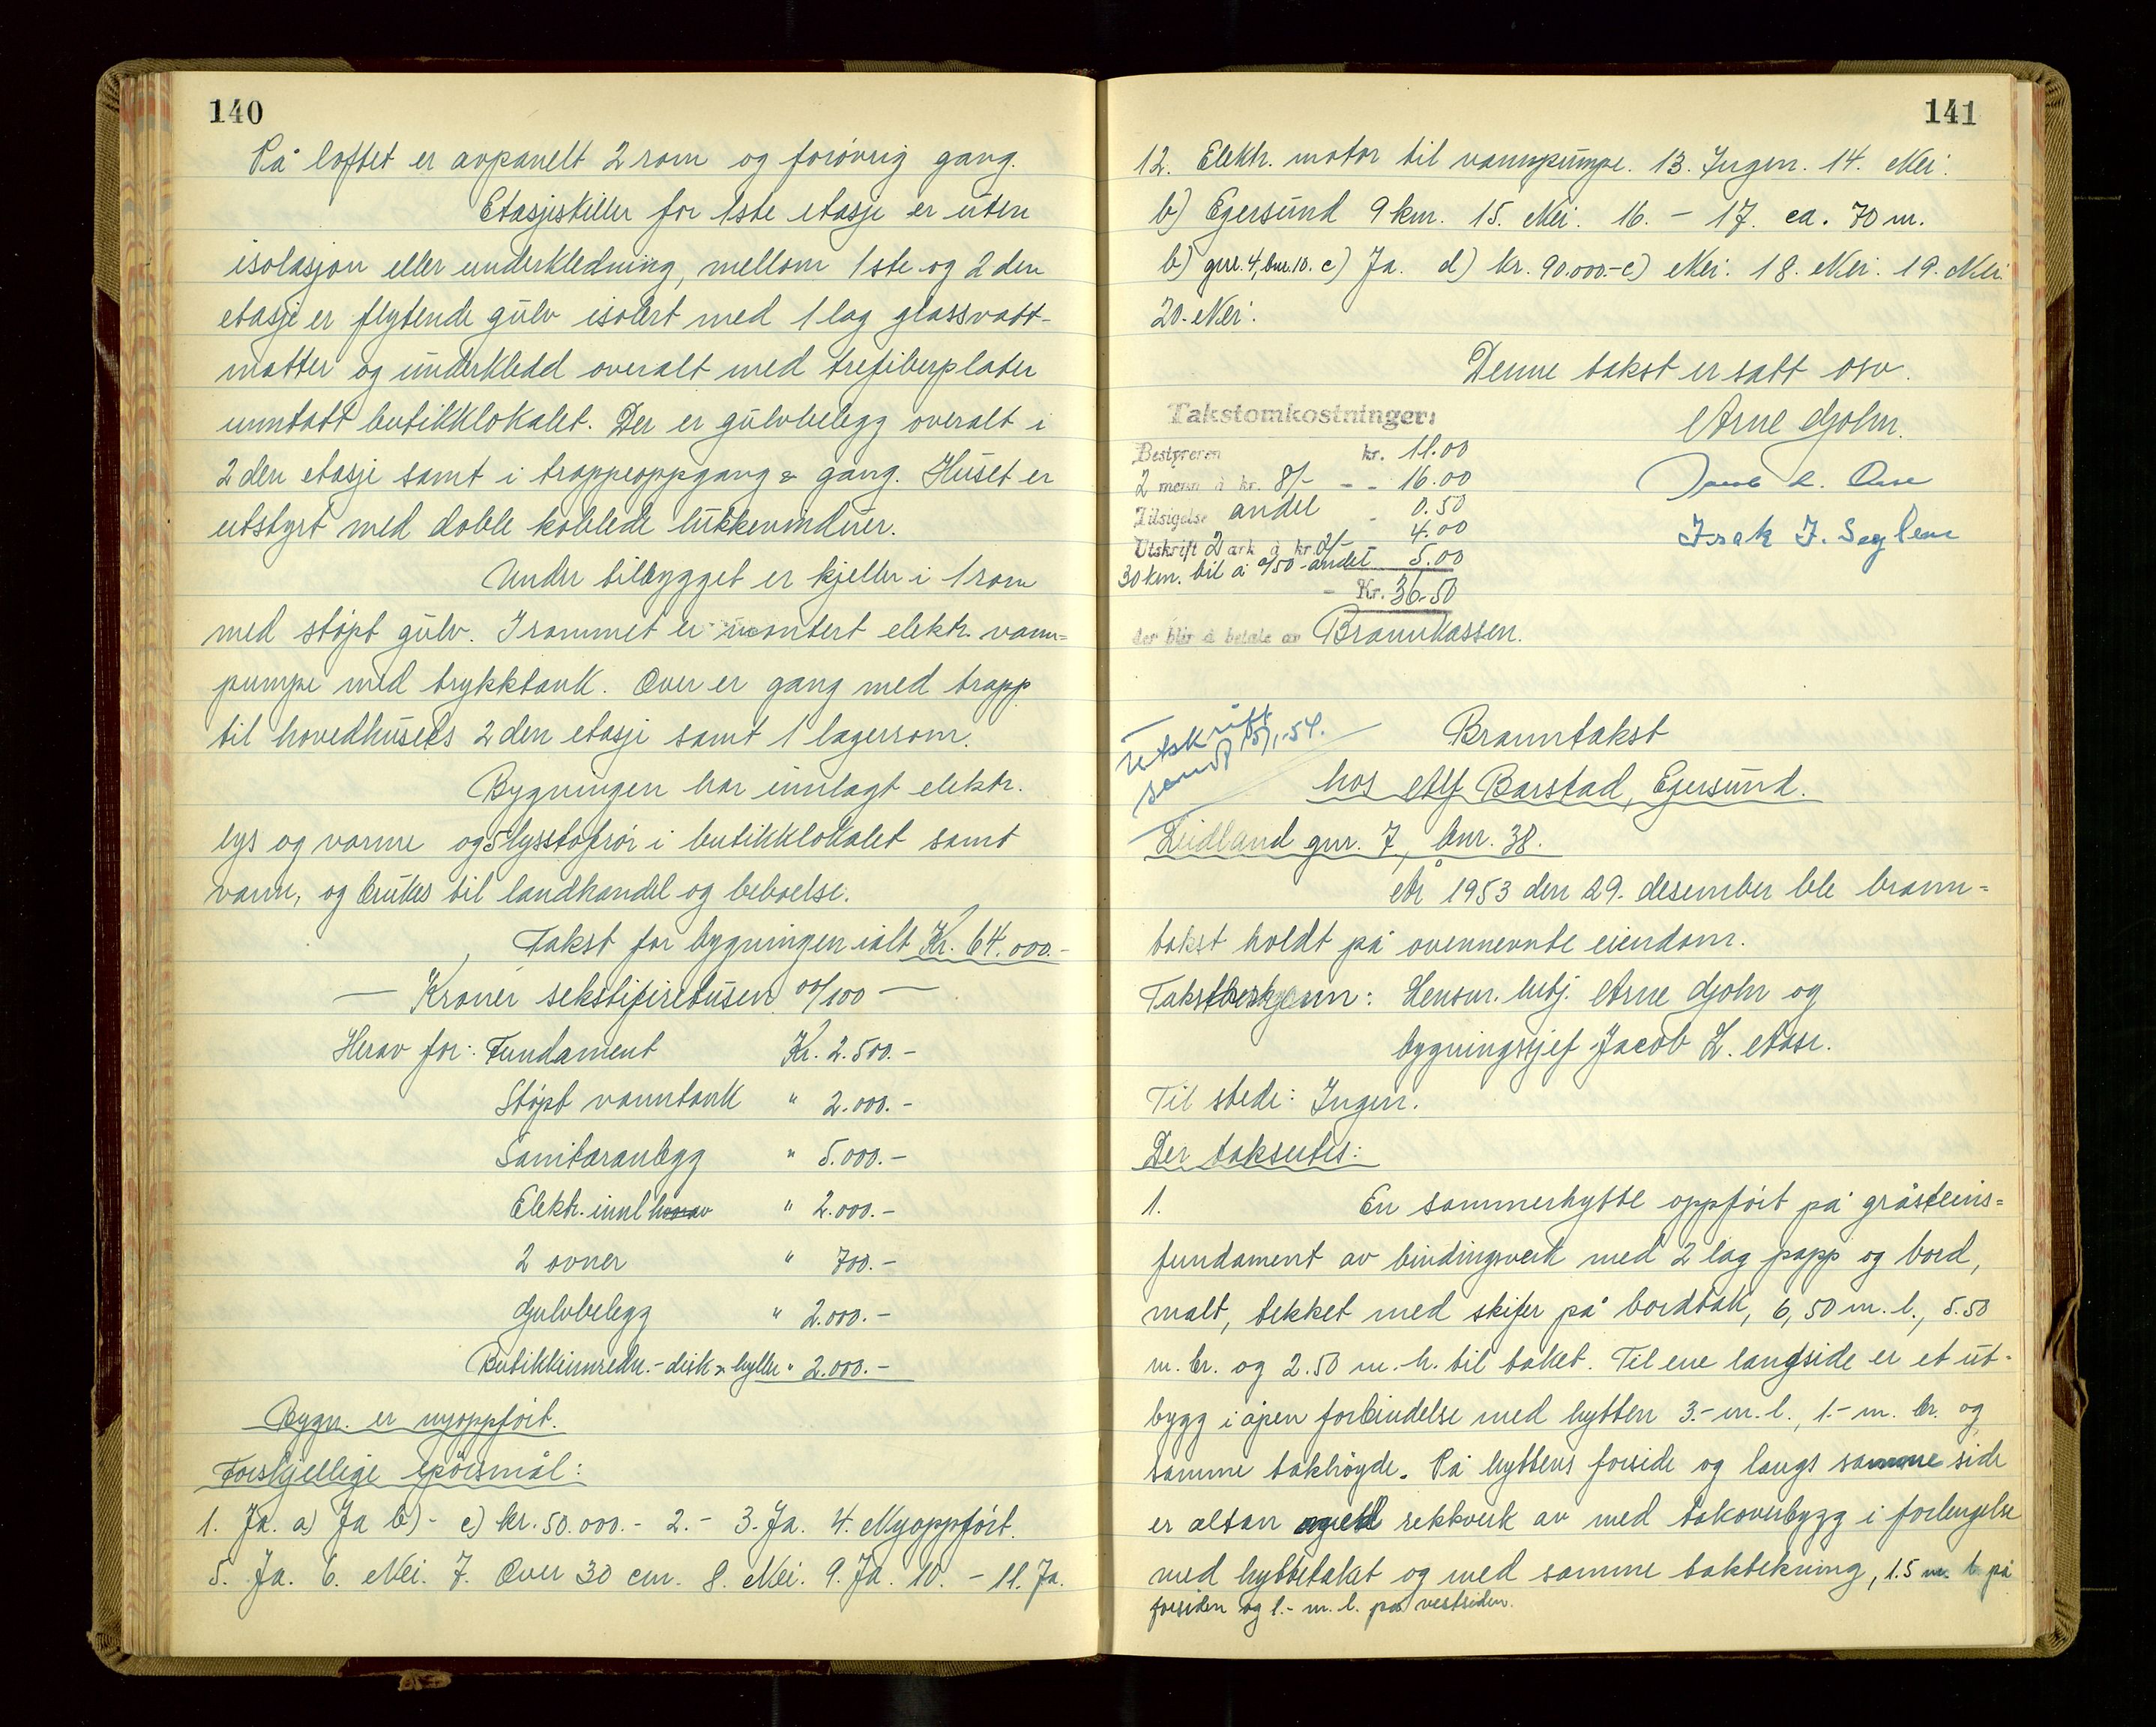 140
På loftet er avpanelt 2 rom og forøvrig gang.
Etasjeskiller for 1ste etasje er uten
isolasjon eller underkledning, mellom 1ste og 2den
etasje er flytende gulv isolert med 1 lag glassvatt-
matter og underkledd overalt med trefiberplater
unntatt butikklokalet. Der er gulvbelegg overalt i
2den etasje samt i trappeoppgang & gang. Huset er
utstyrt med doble koblede lukkevinduer.
Under tilbygget er kjeller i 1 rom
med støpt gulv. I rommet er montert elektr. vann=
pumpe med trykktank. Over er gang med trapp
til hovedhusets 2den etasje samt 1 lagerrom.
Bygningen har innlagt elektr.
lys og varme og 5 lysstofrør i butikklokalet samt
vann, og brukes til landhandel og beboelse.
Takst for bygningen ialt Kr. 64.000.-
— Kroner sekstifiretusen 00/100 —
Herav for: Fundament Kr. 2.500.-
Støpt vanntank " 2.000.-
Sanitæranlegg " 5.000.-
Elektr. innl herav " 2.000.-
2 ovner " 700.-
Gulvbelegg " 2.000.-
Butikkinnredn. - disk & hyller " 2.000.-
Bygn. er nyoppført.
Forskjellige spørsmål:
1. Ja. a) Ja b) - c) kr. 50.000.- 2.- 3. Ja. 4. Nyoppført.
5. Ja. 6. Nei. 7. Over 30 cm. 8. Nei. 9. Ja. 10. - 11. Ja.
141
12. Elektr. motor til vannpumpe. 13. Ingen. 14. Nei.
b) Egersund 9 km. 15. Nei. 16. - 17. ca. 70 m.
b) gnr. 4, bnr. 10. c) Ja. d) kr. 90.000.- e) Nei. 18. Nei. 19. Nei.
20. Nei.
Denne takst er satt osv.
Takstomkostninger:
Bestyreren kr. 11.00
2 menn à kr. 8/- - - 16.00
Tilsigelse andel - 0.50
Utskrift 2 ark à kr. 2/- 4.00
30 km. bil à 0/50 - andel 5.00
- Kr. 36.50
der blir å betale av Brannkassen.
Arne Gjohn.
Isak I. Seglem
Utskrift
sendt 15/1-54.
Branntakst
hos Alf Barstad, Egersund.
Leidland gnr. 7, bnr. 38.
År 1953 den 29. desember ble brann=
takst holdt på ovennevnte eiendom.
Takstbeskjønn: Lensm. betj. Arne Gjohn og
bygningssjef Jacob L. Aase.
Til stede: Ingen.
Der takseres:
1. En sommerhytte oppført på gråsteins=
fundament av bindingsverk med 2 lag papp og bord,
malt, tekket med skifer på bordtak, 6,50 m. l., 5.50
m. br. og 2.50 m. h. til taket. Til ene langside er et ut-
bygg i åpen forbindelse med hytten 3.- m. l., 1.- m. br. og
samme takhøyde. På hyttens forside og langs samme side
er altan rekkverk av med takoverbygg i forlengelse
med hyttetaket og med samme taktekning, 1.5 m. b. på
forsiden og 1.- m. l. på vestsiden.